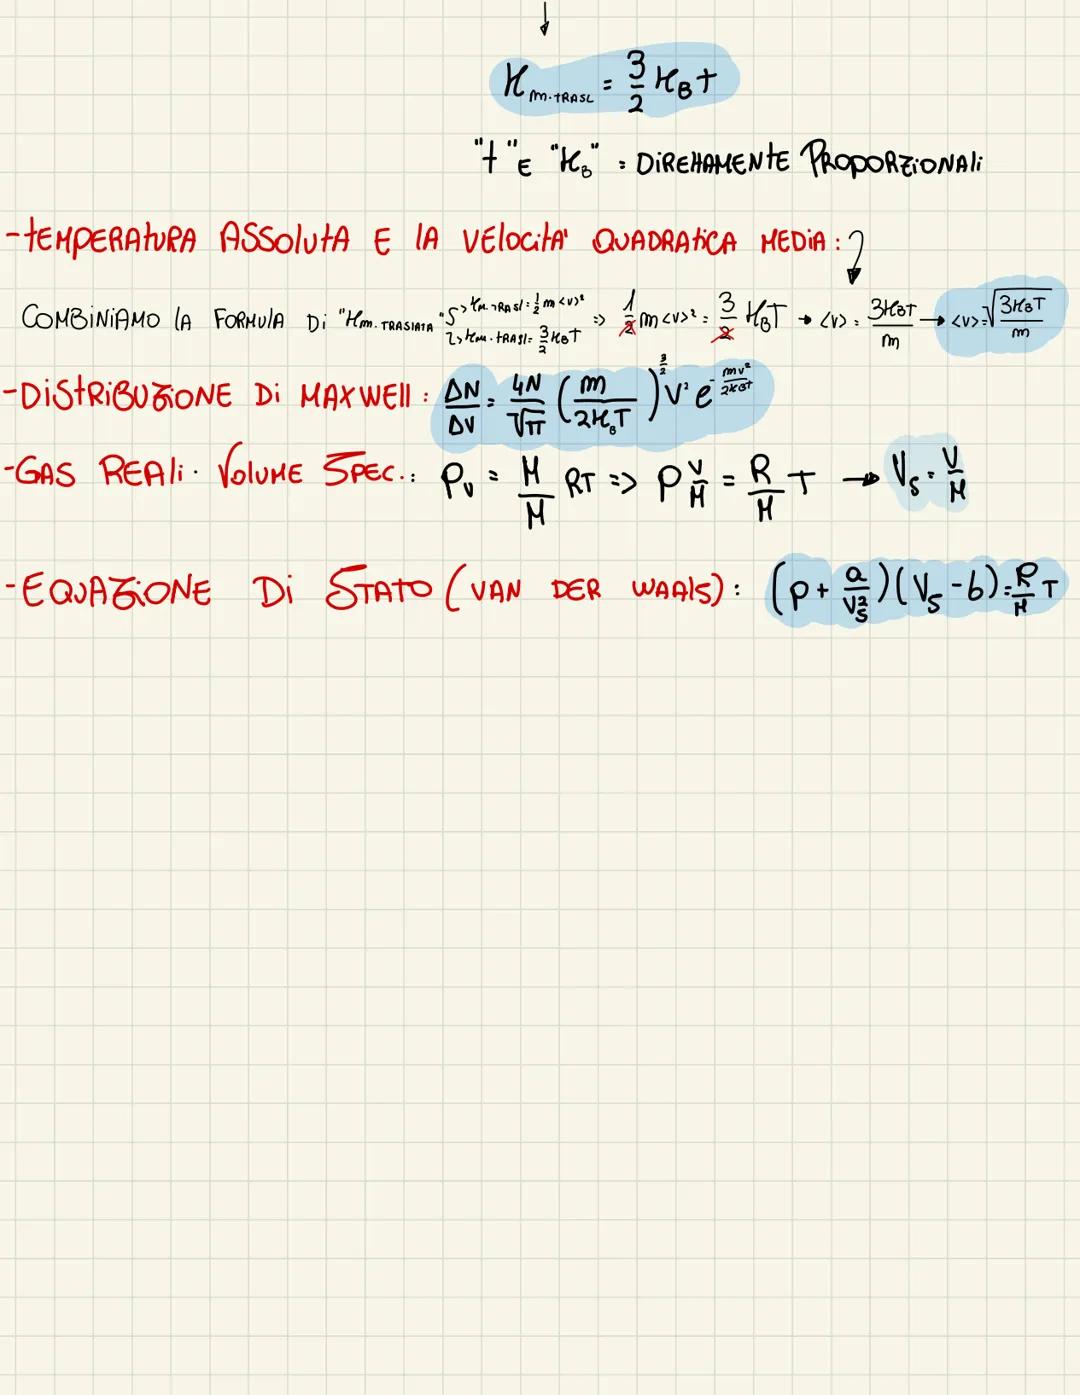 ↓
K m.TRASL = 3/2 K_B T
"T" E "K_B" = DIRETTAMENTE PROPORZIONALI
-TEMPERATURA ASSOLUTA E LA VELOCITA' QUADRATICA MEDIA:
COMBINIAMO LA FORMULA DI "K m.TRASLATA" → K m.TRASL = 1/2 m <v>² → K m.TRASL = 3/2 K_B T => 1/2 m <v>² = 3/2 K_B T → <v> = 3K_B T/m → <v> = √(3K_B T/m)
-DISTRIBUZIONE DI MAXWELL: ΔN/ΔV = 4N/√π (m/2K_B T)^(3/2) V² e^(-mv²/2K_B T)
-GAS REALI. VOLUME SPEC.: P_V = M/M RT => P V/M = R/M T → V_S = V/M
-EQUAZIONE DI STATO (VAN DER WAALS): (P + a/V_S²)(V_S - b) = R/M T